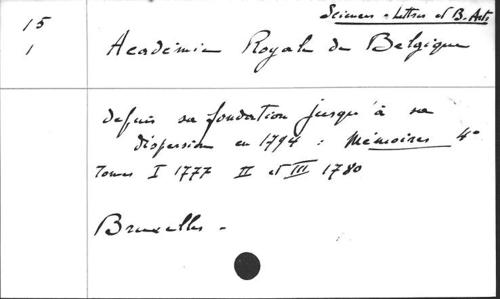 Sciences - Lettres et B. Arts
15
1
Académie Royale de Belgique
depuis sa fondation jusqu'à sa
dispersion en 1794 : Mémoires 4°
Tomes I 1777 II et III 1780
Bruxelles -